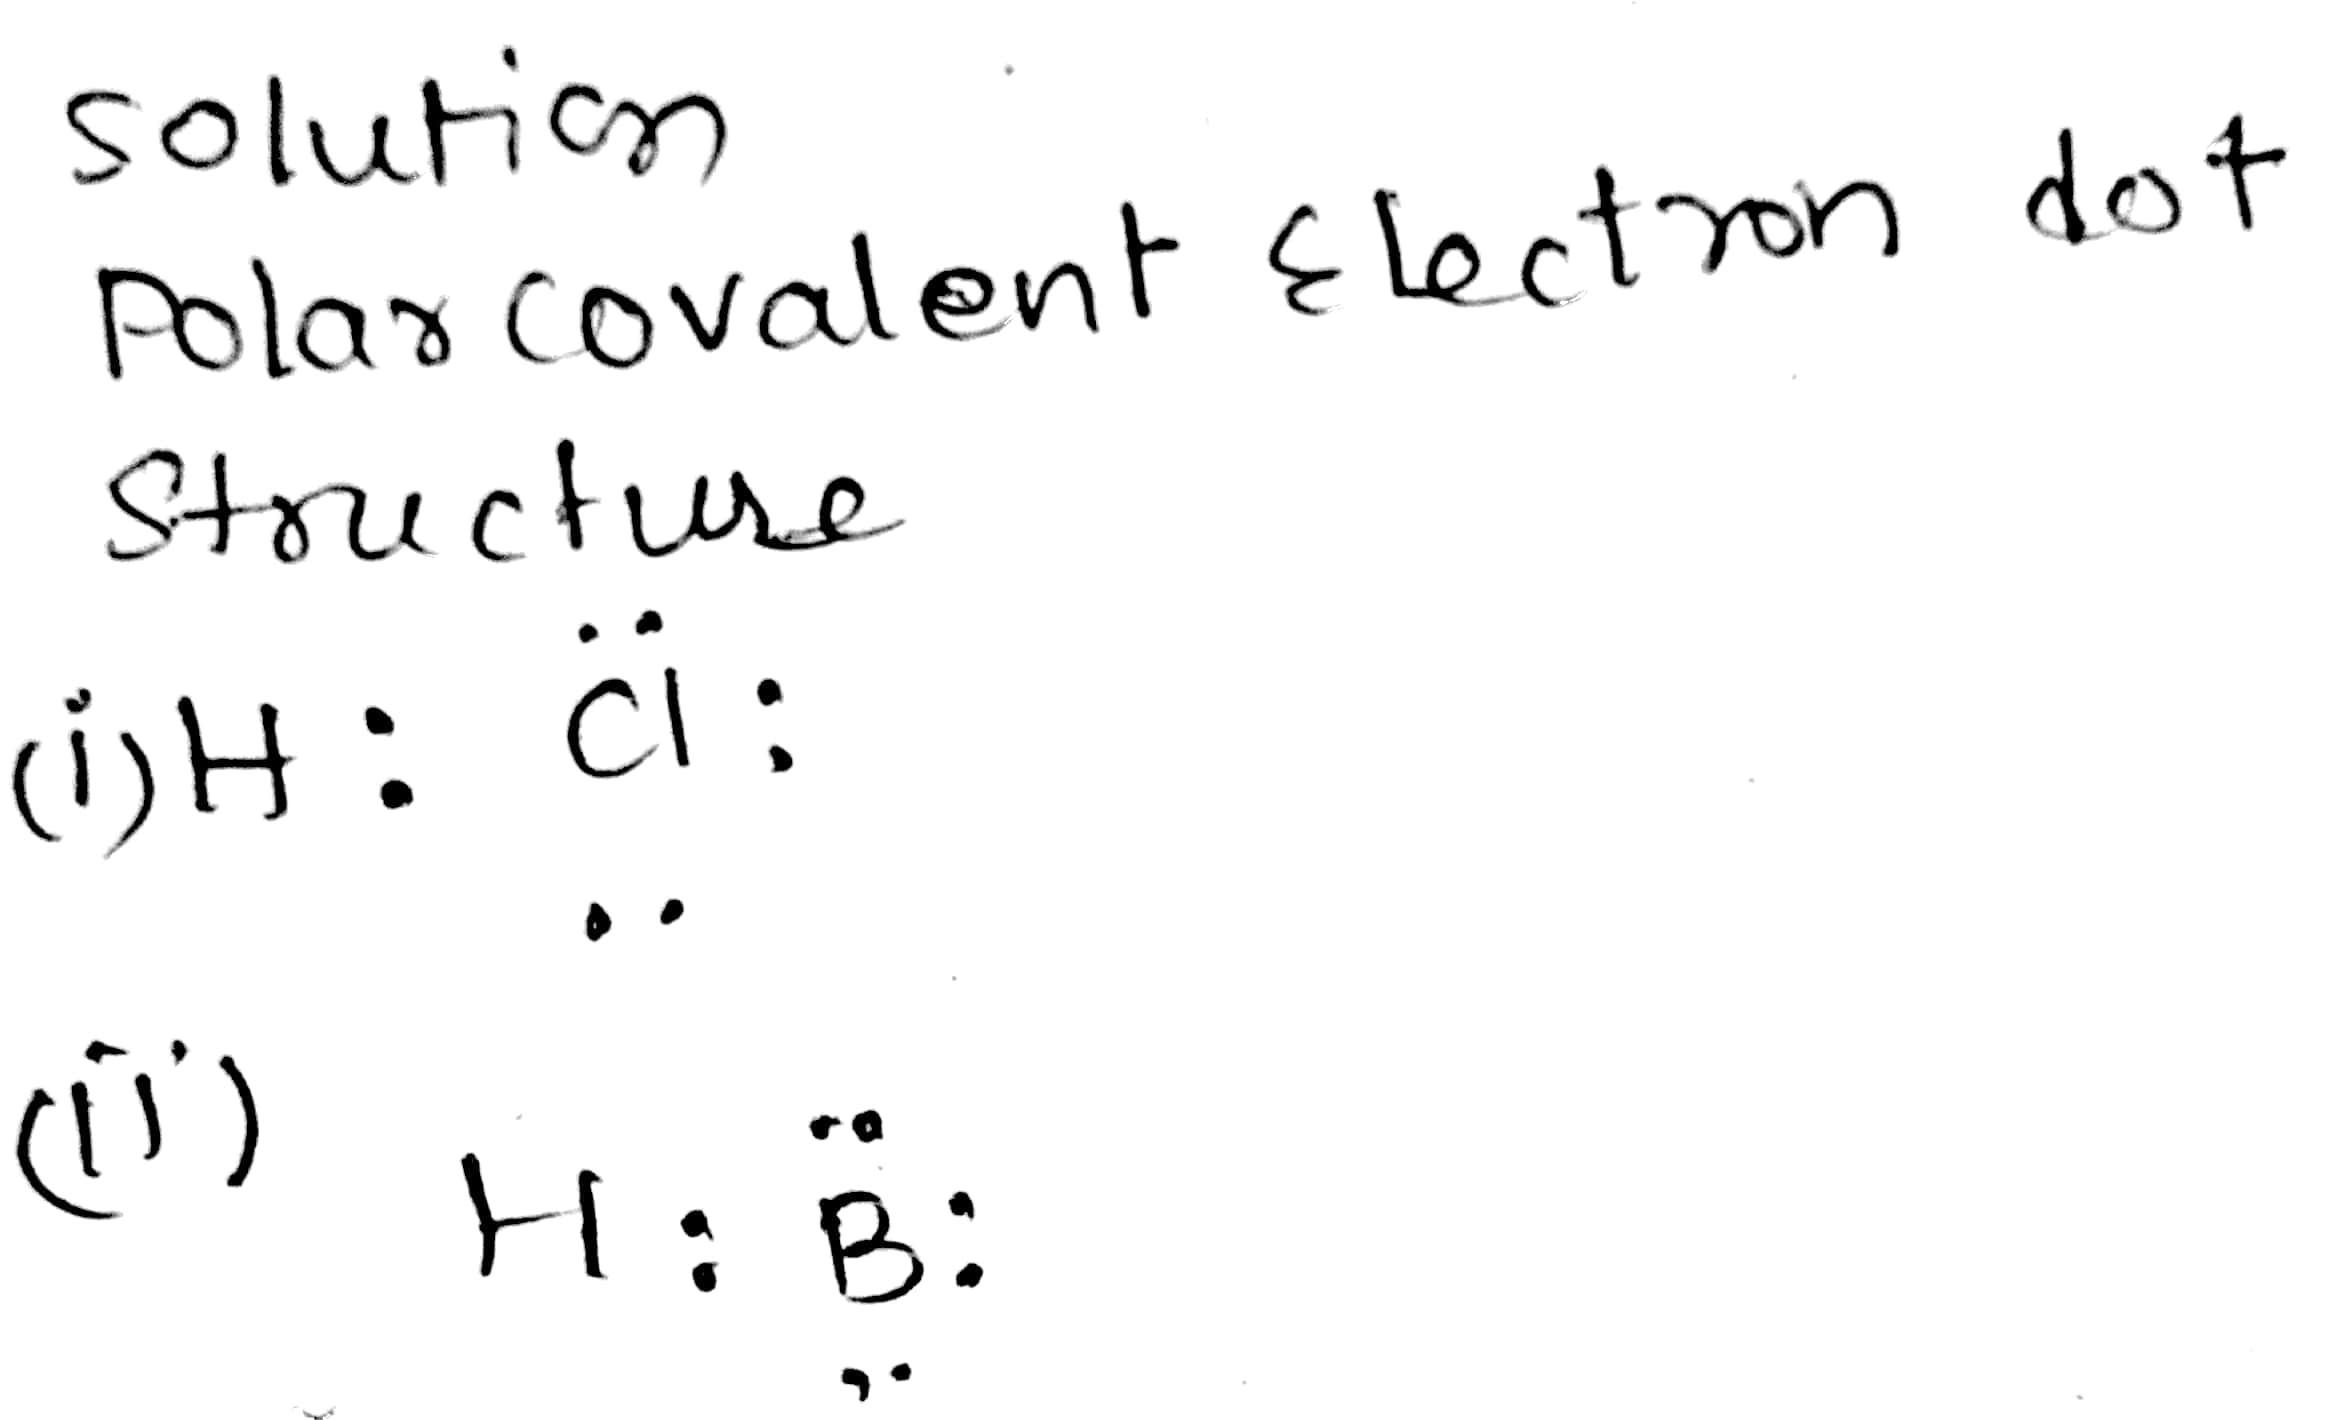 solution
Polar covalent Electron dot
Structure
..
(i) H : Cl :
..
(ii)
..
H : B :
..